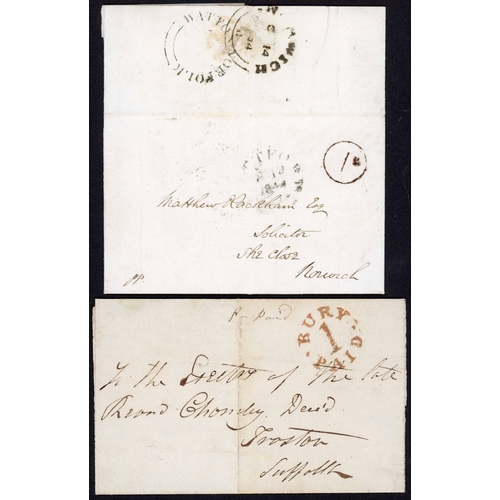 WATT NORFOLK
WICH
14
1d
THETFORD
Matthew Rackham Esq
Solicitor
The Close
Norwich
pp
P- Paid
BURY
1
PAID
To the Exector of the late
Revnd Chomley Decd
Troston
Suffolk